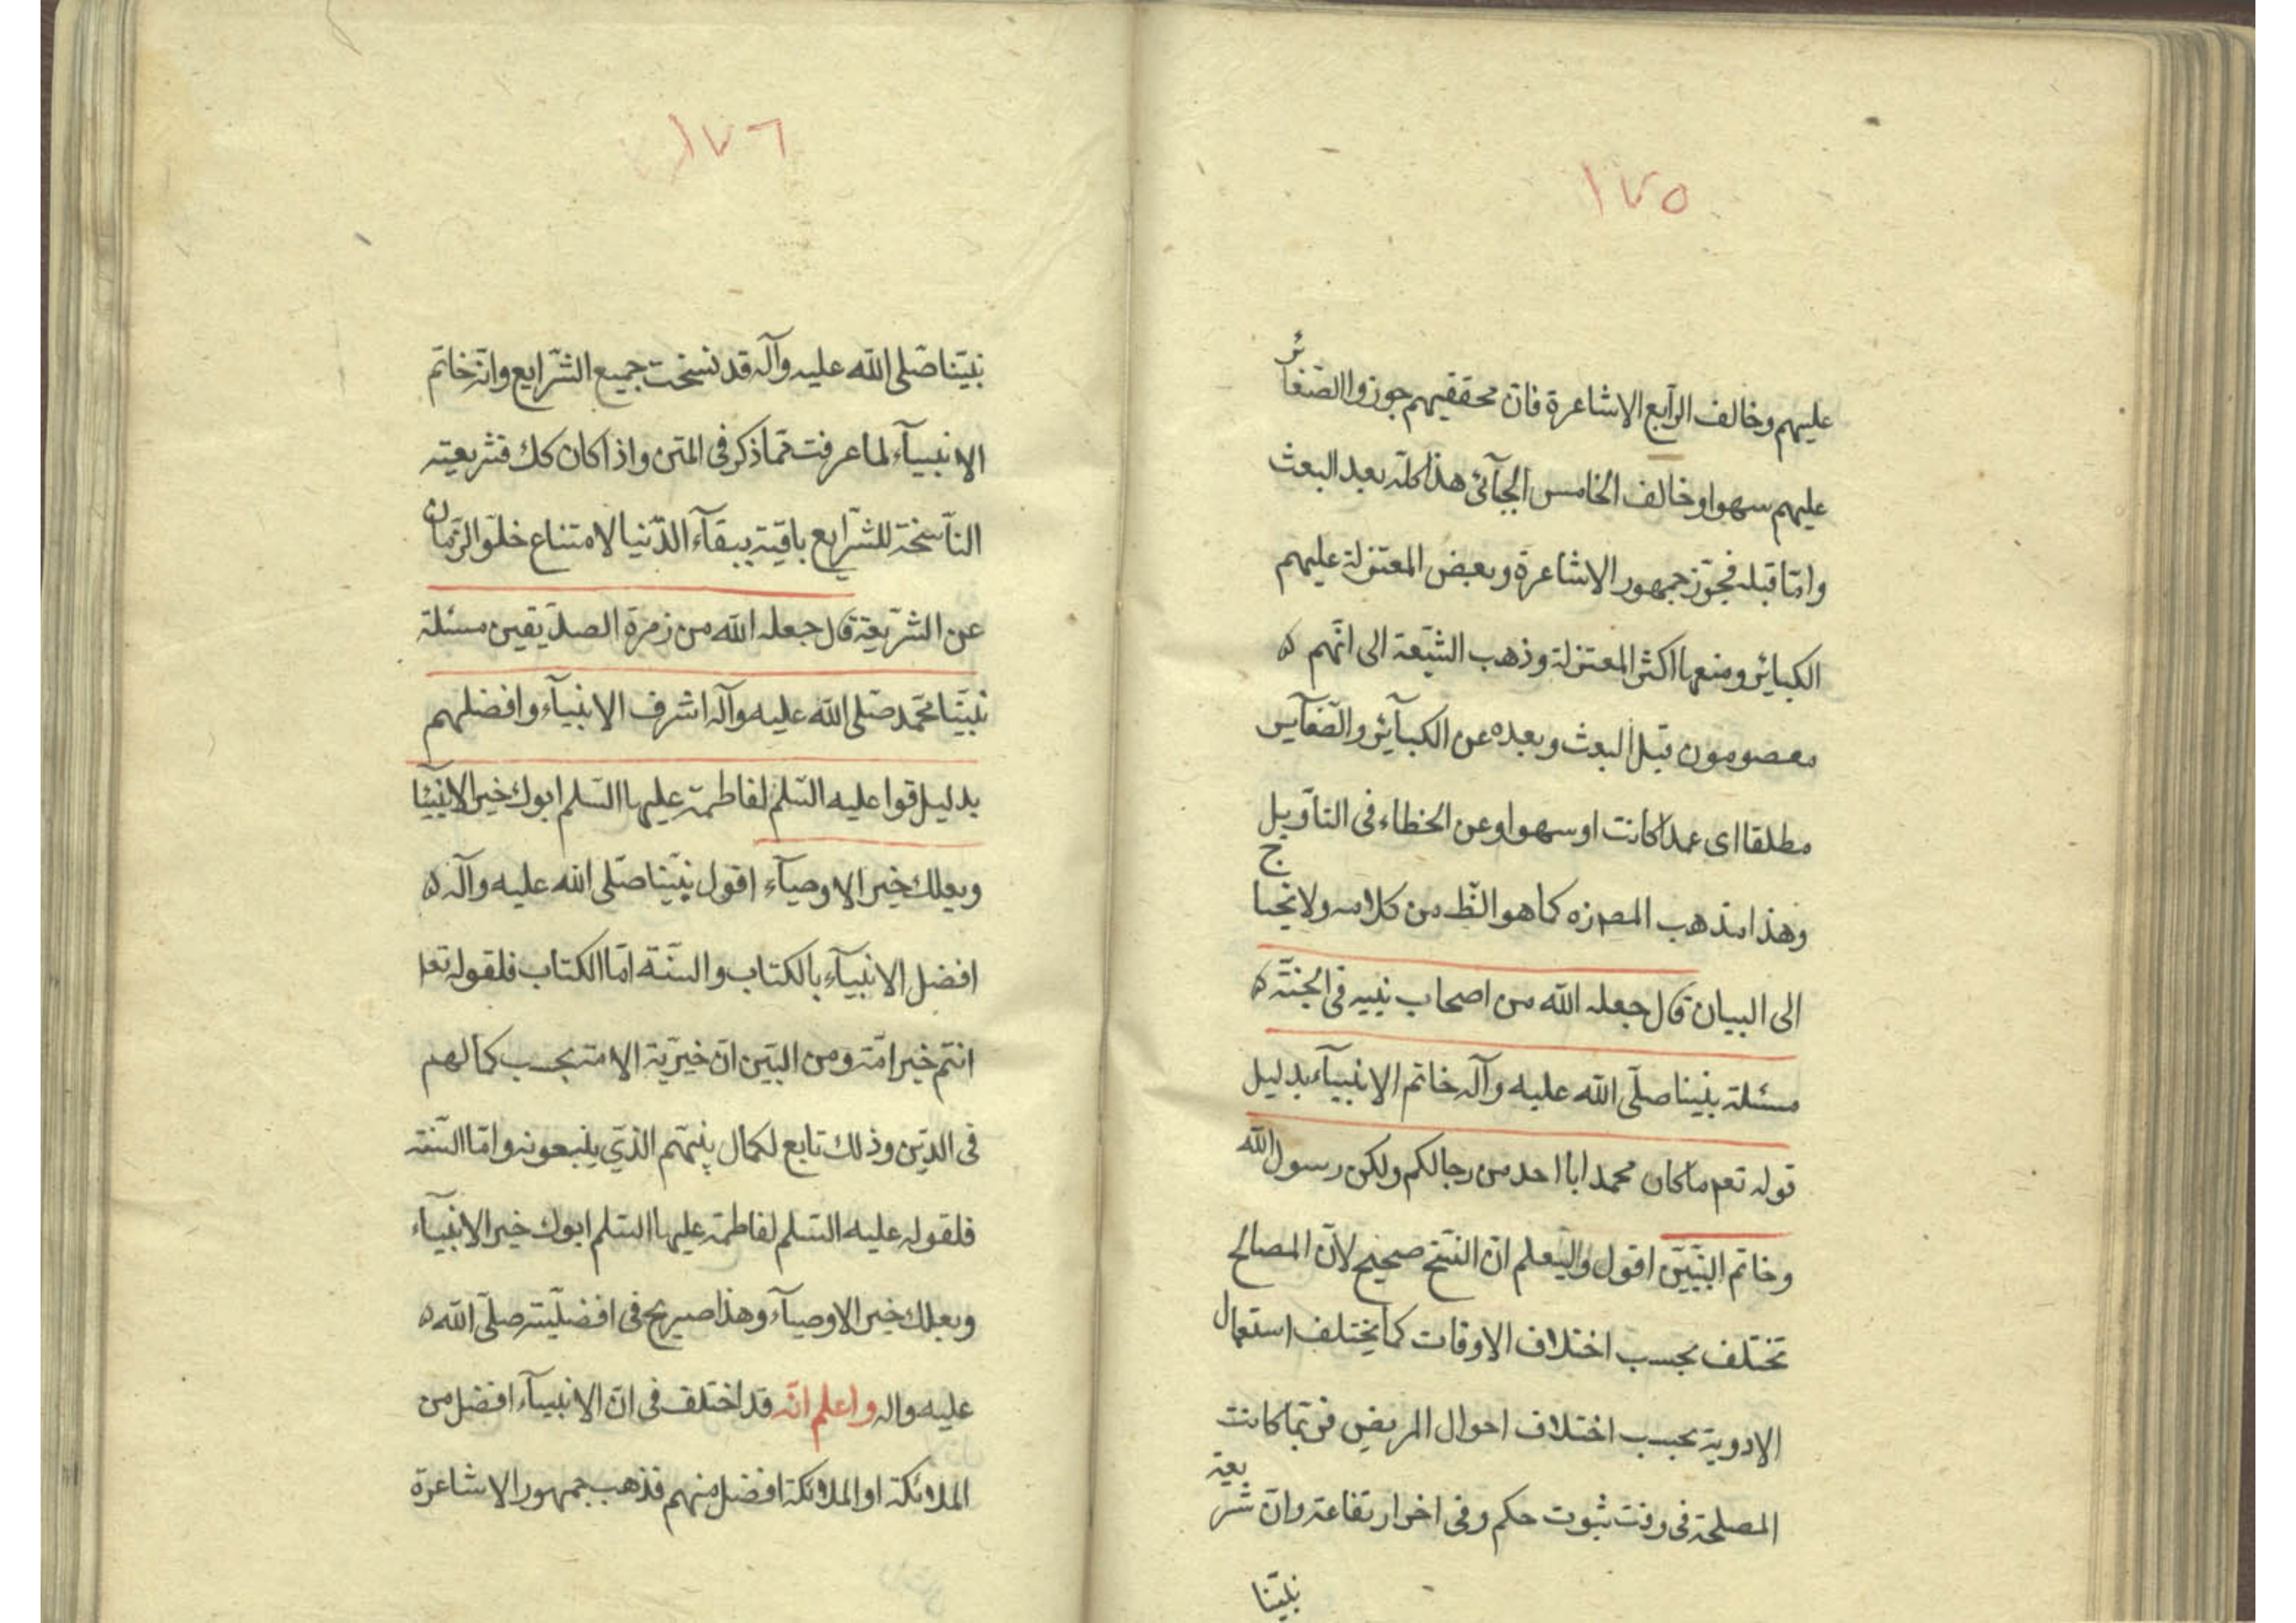 ١٧٥
عليهم وخالف الرّابع الاشاعرة فانّ محققيهم جوزوا الصّغائر
عليهم سهوا وخالف الخامس الجبآئى هذا كلّه بعد البعث
وامّا قبله فجوّز جمهور الاشاعرة وبعض المعتزلة عليهم
الكبائر ومنعها اكثر المعتزلة وذهب الشيّعة الى انّهم
معصومون قبل البعث وبعده عن الكبآئر والصّغآير
مطلقا اى عمدا كانت او سهوا وعن الخطاء فى التاويل
وهذا مذهب المصره كما هو الظّ من كلامه ولا يحتاج
الى البيان قال جعله الله من اصحاب نبيه فى الجنّة
مسئلة نبينا صلّى الله عليه وآله خاتم الانبيآء بدليل
قوله تعم ما كان محمد ابا احد من رجالكم ولكن رسول الله
وخاتم النبّييّن اقول وليعلم انّ النسّخ صحيح لانّ المصالح
تختلف بحسب اختلاف الاوقات كما يختلف استعمال
الادوية بحسب اختلاف احوال المريض فربّما كانت
المصلحة فى وقت ثبوت حكم وفى اخر ارتفاعه وانّ شريعة
نبيّنا
١٧٦
نبيّنا صّلى الله عليه وآله قد نسخت جميع الشّرايع وانّه خاتم
الانبيآء لما عرفت ممّا ذكر فى المتن واذا كان كك فشريعته
النّاسخة للشّرايع باقية ببقآء الدّنيا لامتناع خلوّ الزّمان
عن الشّريعة قال جعله الله من زمرة الصدّيقين مسئلة
نبيّنا محّمد صّلى الله عليه وآله اشرف الانبيآء وافضلهم
بدليل قوا عليه السّلم لفاطمة عليها السّلم ابوك خير الانبيآ
وبعلك خير الاوصيآء اقول نبيّنا صّلى الله عليه وآله
افضل الانبيآء بالكتاب والسّنّة امّا الكتاب فلقوله تعا
انتم خير امّة ومن البيّن انّ خيريّة الامّة بحسب كمالهم
فى الدّين وذلك تابع لكمال نبيّهم الذّي يتبعونه وامّا السّنّة
فلقوله عليه السّلم لفاطمة عليها السّلم ابوك خير الانبيآء
وبعلك خير الاوصيآء وهذا صريح فى افضليّته صلّى الله
عليه واله واعلم انّه قد اختلف فى انّ الانبيآء افضل من
الملائكة او الملائكة افضل منهم فذهب جمهور الاشاعرة